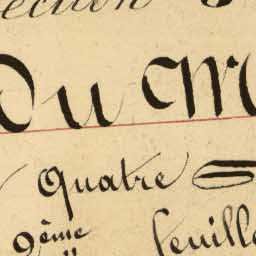 ection
Du M
Quatre
9ème feuille